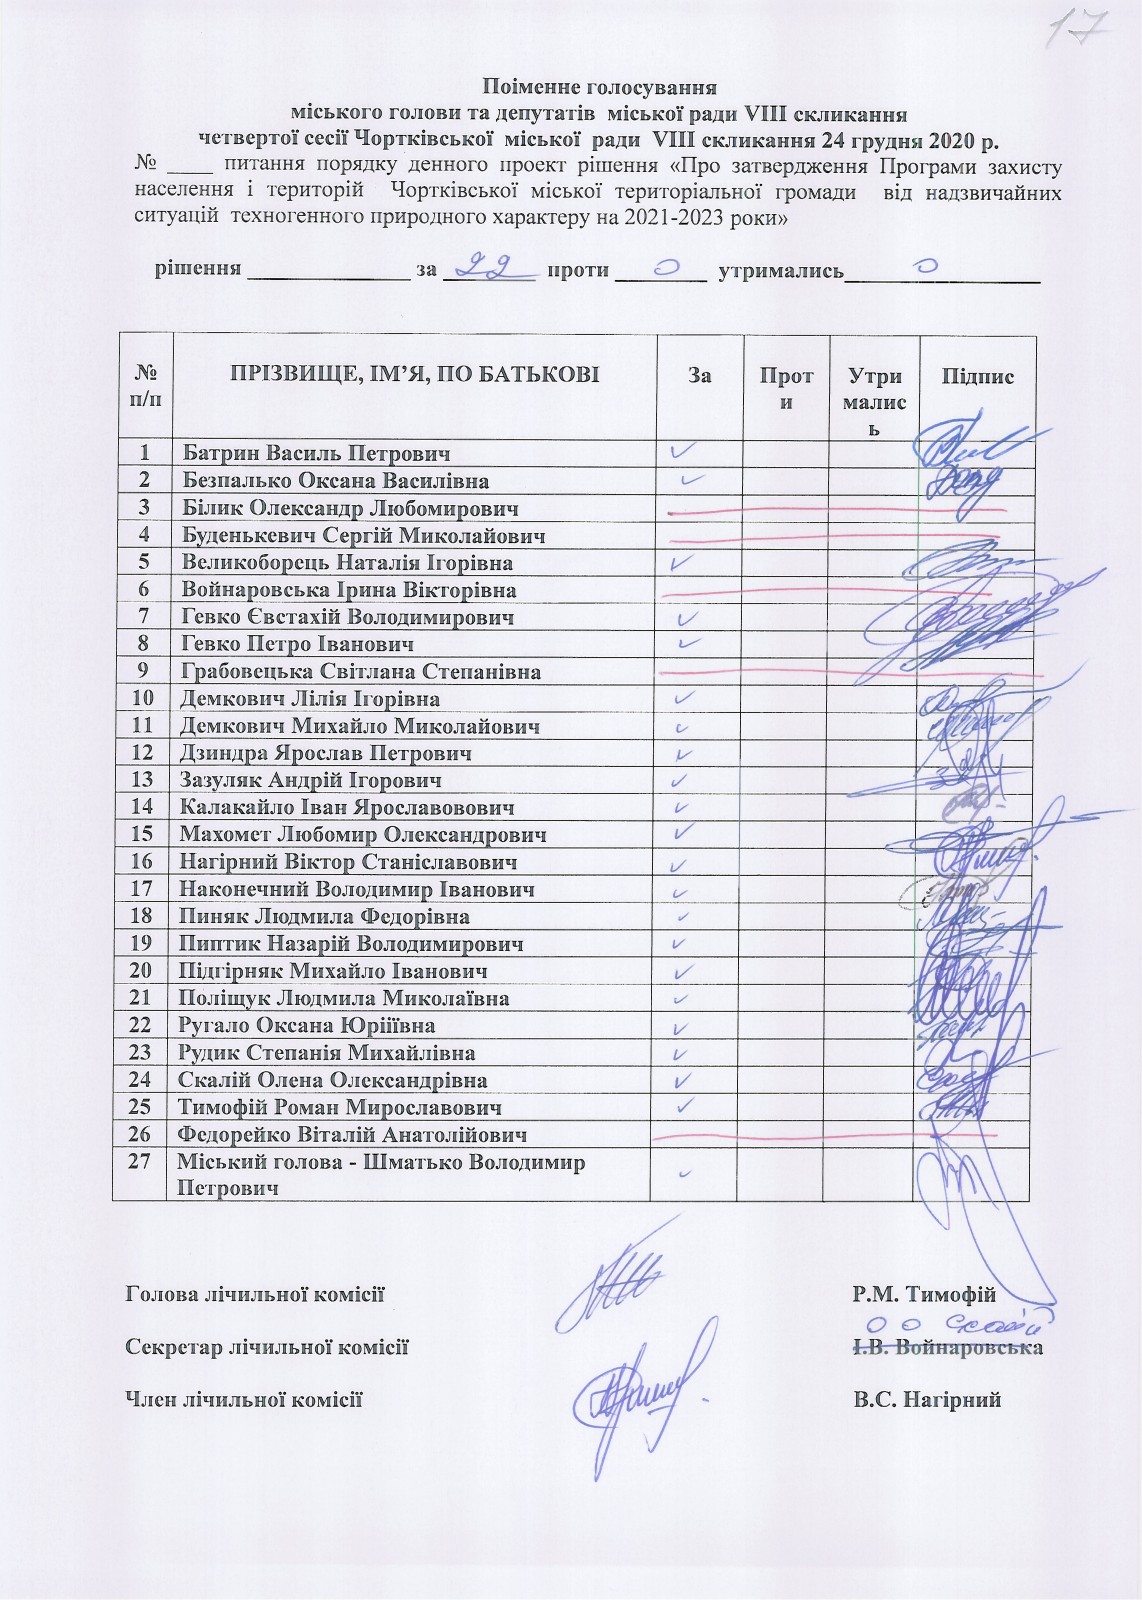 17
Поіменне голосування
міського голови та депутатів міської ради VIII скликання
четвертої сесії Чортківської міської ради VIII скликання 24 грудня 2020 р.
№ ____ питання порядку денного проект рішення «Про затвердження Програми захисту
населення і територій Чортківської міської територіальної громади від надзвичайних
ситуацій техногенного природного характеру на 2021-2023 роки»
рішення ______________ за 22 проти 0 утримались 0
№ п/п ПРІЗВИЩЕ, ІМ’Я, ПО БАТЬКОВІ За Проти Утримались Підпис
1 Батрин Василь Петрович ✓
2 Безпалько Оксана Василівна ✓
3 Білик Олександр Любомирович
4 Буденькевич Сергій Миколайович
5 Великоборець Наталія Ігорівна ✓
6 Войнаровська Ірина Вікторівна
7 Гевко Євстахій Володимирович ✓
8 Гевко Петро Іванович ✓
9 Грабовецька Світлана Степанівна
10 Демкович Лілія Ігорівна ✓
11 Демкович Михайло Миколайович ✓
12 Дзиндра Ярослав Петрович ✓
13 Зазуляк Андрій Ігорович ✓
14 Калакайло Іван Ярославовович ✓
15 Махомет Любомир Олександрович ✓
16 Нагірний Віктор Станіславович ✓
17 Наконечний Володимир Іванович ✓
18 Пиняк Людмила Федорівна ✓
19 Пиптик Назарій Володимирович ✓
20 Підгірняк Михайло Іванович ✓
21 Поліщук Людмила Миколаївна ✓
22 Ругало Оксана Юріїївна ✓
23 Рудик Степанія Михайлівна ✓
24 Скалій Олена Олександрівна ✓
25 Тимофій Роман Мирославович ✓
26 Федорейко Віталій Анатолійович
27 Міський голова - Шматько Володимир
Петрович ✓
Голова лічильної комісії Р.М. Тимофій
О О Скалій
Секретар лічильної комісії І.В. Войнаровська
Член лічильної комісії В.С. Нагірний